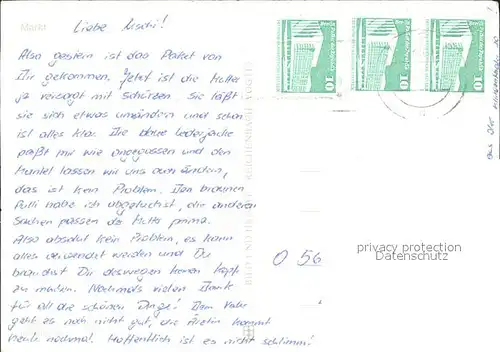 Markt
Liebe Uschi!
Also gestern ist das Paket von
Dir gekommen. Jetzt ist die Mutter
ja versorgt mit Schürzen. Sie läßt
sie sich etwas umändern und schon
ist alles klar. Die Lederjacke
paßt mir wie angegossen und den
Mantel lassen wir uns umändern,
das ist kein Problem. Den braunen
Pulli habe ich abgeluchst, die anderen
Sachen passen der Mutter prima.
Also absolut kein Problem, es kann
alles verwendet werden und Du
brauchst Dir deswegen keinen Kopf
zu machen. Nochmals vielen Dank
für all die schönen Dinge! Dem Vater
geht es noch nicht gut, die Ärztin kommt
heute nochmal. Hoffentlich ist es nicht schlimm!
10
10
10
O 56
privacy protection
Datenschutz